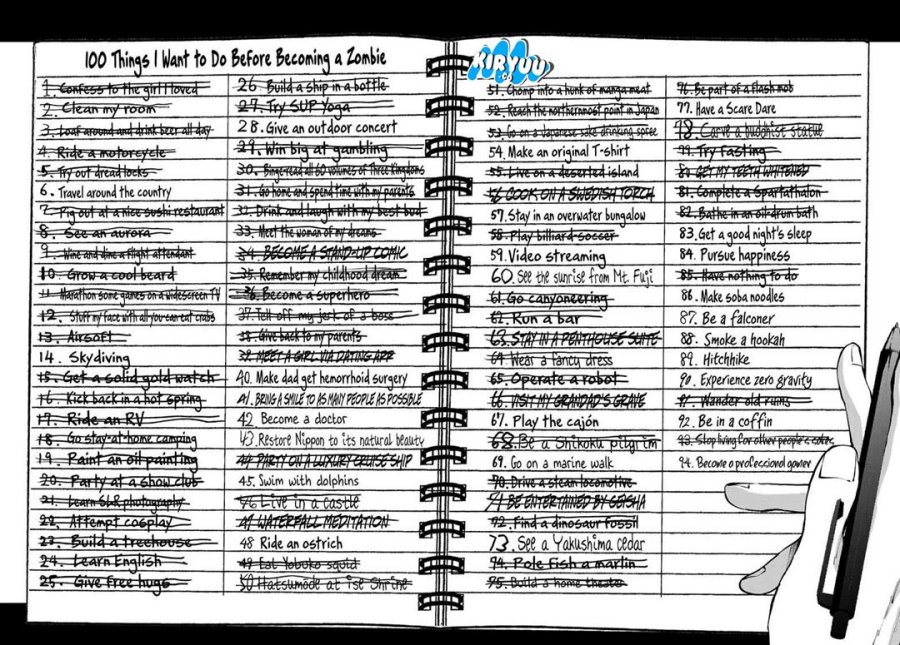 100 Things I Want to Do Before Becoming a Zombie
KIRYUU
.co
1. Confess to the girl I loved
2. Clean my room
3. Loaf around and drink beer all day
4. Ride a motorcycle
5. Try out dread locks
6. Travel around the country
7. Pig out at a nice sushi restaurant
8. See an aurora
9. Wine and dine a flight attendant
10. Grow a cool beard
11. Marathon some games on a widescreen TV
12. Stuff my face with all you can eat crabs
13. Airsoft
14. Skydiving
15. Get a solid gold watch
16. Kick back in a hot spring
17. Ride an RV
18. Go stay-at-home camping
19. Paint an oil painting
20. Party at a show club
21. Learn SLR photography
22. Attempt cosplay
23. Build a treehouse
24. Learn English
25. Give free hugs
26. Build a ship in a bottle
27. Try SUP Yoga
28. Give an outdoor concert
29. Win big at gambling
30. Binge-read all 60 volumes of Three Kingdoms
31. Go home and spend time with my parents
32. Drink and laugh with my best bud
33. Meet the woman of my dreams
34. BECOME A STAND-UP COMIC
35. Remember my childhood dream
36. Become a superhero
37. Tell off my jerk of a boss
38. Give back to my parents
39. MEET A GIRL VIA DATING APP
40. Make dad get hemorrhoid surgery
41. BRING A SMILE TO AS MANY PEOPLE AS POSSIBLE
42 Become a doctor
43. Restore Nippon to its natural beauty
44 PARTY ON A LUXURY CRUISE SHIP
45. Swim with dolphins
46 Live in a castle
47 WATERFALL MEDITATION
48 Ride an ostrich
49 Eat Yobuko squid
50 Hatsumode at Ise Shrine
51. Chomp into a hunk of manga meat
52. Reach the northernmost point in Japan
53. Go on a Japanese sake drinking spree
54. Make an original T-shirt
55. Live on a deserted island
56 COOK ON A SWEDISH TORCH
57. Stay in an overwater bungalow
58. Play billiard soccer
59. Video streaming
60. See the sunrise from Mt. Fuji
61. Go canyoneering
62. Run a bar
63. STAY IN A PENTHOUSE SUITE
64. Wear a fancy dress
65. Operate a robot
66. VISIT MY GRANDAD'S GRAVE
67. Play the cajón
68. Be a Shikoku pilgrim
69. Go on a marine walk
70. Drive a steam locomotive
71 BE ENTERTAINED BY GEISHA
72. Find a dinosaur fossil
73. See a Yakushima cedar
74. Pole fish a marlin
75. Build a home theater
76. Be part of a flash mob
77. Have a Scare Dare
78. Carve a buddhist statue
79. Try Fasting
81 GET MY TEETH WHITENED
81. Complete a Spartathalon
82. Bathe in an oil-drum bath
83. Get a good night's sleep
84. Pursue happiness
85. Have nothing to do
86. Make soba noodles
87. Be a falconer
88. Smoke a hookah
89. Hitchhike
90. Experience zero gravity
91. Wander old ruins
92. Be in a coffin
93. Stop living for other people's sakes
94. Become a professional gamer